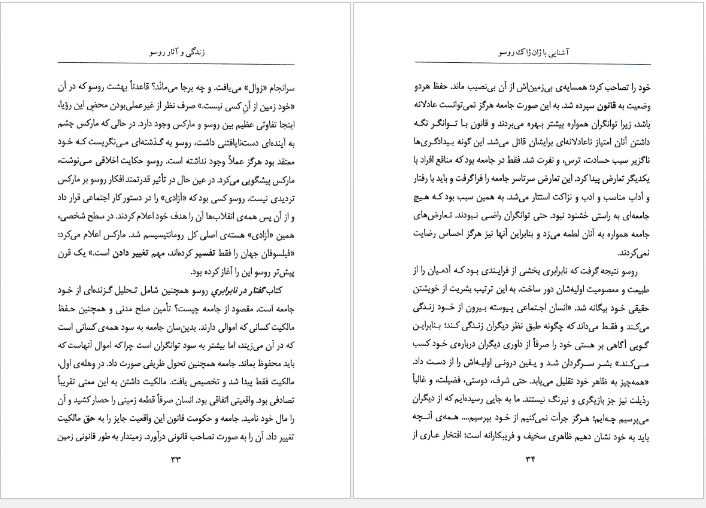 زندگی و آثار روسو
سرانجام «زوال» می‌یافت. و چه برجا می‌ماند؟ قاعدتاً بهشت روسو که در آن
«خود زمین از آنِ کسی نیست.» صرف نظر از غیرعملی‌بودن محض این رؤیا،
اینجا تفاوتی عظیم بین روسو و مارکس وجود دارد. در حالی که مارکس چشم
به آینده‌ای دست‌نایافتنی داشت، روسو به گذشته‌ای می‌نگریست که خود
معتقد بود هرگز عملاً وجود نداشته است. روسو حکایت اخلاقی می‌نوشت،
مارکس پیشگویی می‌کرد. در عین حال در تأثیر قدرتمند افکار روسو بر مارکس
تردیدی نیست. روسو کسی بود که «آزادی» را در دستور کار اجتماعی قرار داد
و از آن پس همه‌ی انقلاب‌ها آن را هدف خود اعلام کردند. در سطح شخصی،
همین «آزادی» هسته‌ی اصلی کل رومانتیسیسم شد. مارکس اعلام می‌کرد:
«فیلسوفان جهان را فقط تفسیر کرده‌اند، مهم تغییر دادن است.» یک قرن
پیش‌تر روسو این را آغاز کرده بود.
کتاب گفتار در نابرابری روسو همچنین شامل تحلیل گزنده‌ای از خود
جامعه است. مقصود از جامعه چیست؟ تأمین صلح مدنی و همچنین حفظ
مالکیت کسانی که اموالی دارند. بدین‌سان جامعه به سود همه‌ی کسانی است
که در آن می‌زیند، اما بیشتر به سود توانگران است چرا که اموال آنهاست که
باید محفوظ بماند. جامعه همچنین تحول ظریفی صورت داد. در وهله‌ی اول،
مالکیت فقط پیدا شد و تخصیص یافت. مالکیت داشتن به این معنی تقریباً
تصادفی بود. واقعیتی اتفاقی بود. انسان صرفاً قطعه زمینی را حصار کشید و آن
را مال خود نامید. جامعه و حکومت قانون این واقعیت جایز را به حق مالکیت
تغییر داد. آن را به صورت تصاحب قانونی درآورد. زمیندار به طور قانونی زمین
۳۳
آشنایی با ژان ژاک روسو
خود را تصاحب کرد؛ همسایه‌ی بی‌زمین‌اش از آن بی‌نصیب ماند. حفظ هر دو
وضعیت به قانون سپرده شد. به این صورت جامعه هرگز نمی‌توانست عادلانه
باشد، زیرا توانگران همواره بیشتر بهره می‌بردند و قانون با توانگر نگه
داشتن آنان امتیاز ناعادلانه‌ای برایشان قائل می‌شد. این گونه بیدادگری‌ها
ناگزیر سبب حسادت، ترس، و نفرت شد. فقط در جامعه بود که منافع افراد با
یکدیگر تعارض پیدا کرد. این تعارض سرتاسر جامعه را فراگرفت و باید با رفتار
و آداب مناسب و ادب و نزاکت استتار می‌شد. به همین سبب بود که هیچ
جامعه‌ای به راستی خشنود نبود. حتی توانگران راضی نبودند. تعارض‌های
جامعه همواره به آنان لطمه می‌زد و بنابراین آنها نیز هرگز احساس رضایت
نمی‌کردند.
روسو نتیجه گرفت که نابرابری بخشی از فرایندی بود که آدمیان را از
طبیعت و معصومیت اولیه‌شان دور ساخت. به این ترتیب بشریت از خویشتن
حقیقی خود بیگانه شد. «انسان اجتماعی پیوسته بیرون از خود زندگی
می‌کند و فقط می‌داند که چگونه طبق نظر دیگران زندگی کند؛ بنابراین
گویی آگاهی بر هستی خود را صرفاً از داوری دیگران درباره‌ی خود کسب
می‌کند.» بشر سرگردان شد و یقین درونی اولیه‌اش را از دست داد.
«همه‌چیز به ظاهر خود تقلیل می‌یابد. حتی شرف، دوستی، فضیلت، و غالباً
رذیلت نیز جز بازیگری و نیرنگ نیستند. ما به جایی رسیده‌ایم که از دیگران
می‌پرسیم چه‌ایم؛ هرگز جرأت نمی‌کنیم از خود بپرسیم.... همه‌ی آنچه
باید به خود نشان دهیم ظاهری سخیف و فریبکارانه است؛ افتخار عاری از
۳۴